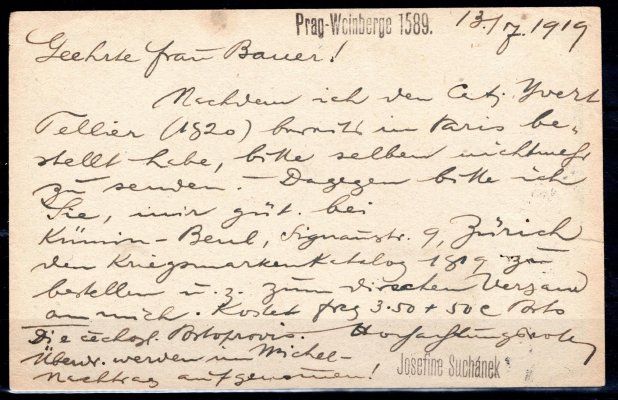 Prag-Weinberge 1589.
13./7. 1919
Geehrte Frau Bauer!
Nachdem ich den Cat. Yvert
Tellier (1920) bereits in Paris be-
stellt habe, bitte selben nichtmehr
zu senden. – Dagegen bitte ich
Sie, mir güt. bei
Kümin-Beul, Signaustr. 9, Zürich
den Kriegsmarkenkatalog 1919 zu
bestellen u. z. zum direkten Versand
an mich. Kostet frcs 3·50 + 50c Porto
Die čechosl. Portoprovis. Hochachtungsvoll
Überdr. werden im Michel-
Nachtrag aufgenommen!
Josefine Suchánek